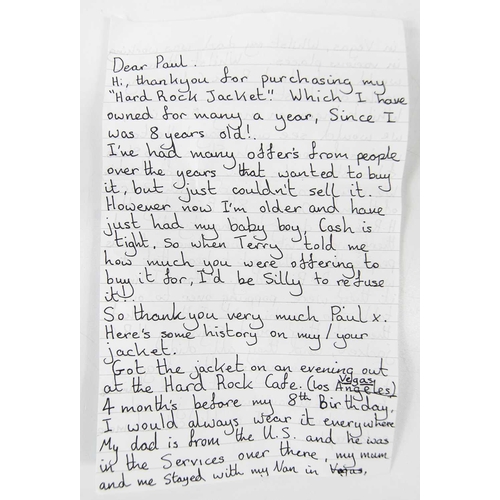 Dear Paul.
Hi, thankyou for purchasing my
"Hard Rock Jacket". Which I have
owned for many a year, Since I
was 8 years old!.
I've had many offer's from people
over the years that wanted to buy
it, but just couldn't sell it.
However now I'm older and have
just had my baby boy, Cash is
tight, So when Terry told me
how much you were offering to
buy it for, I'd be Silly to refuse
it!!
So thankyou very much Paul x.
Here's some history on my/your
jacket.
Got the jacket on an evening out
at the Hard Rock Cafe. (Los Vegas Angeles)
4 month's before my 8th Birthday.
I would always wear it everywhere
My dad is from the U.S. and he was
in the Services over there, my mum
and me Stayed with my Nan in